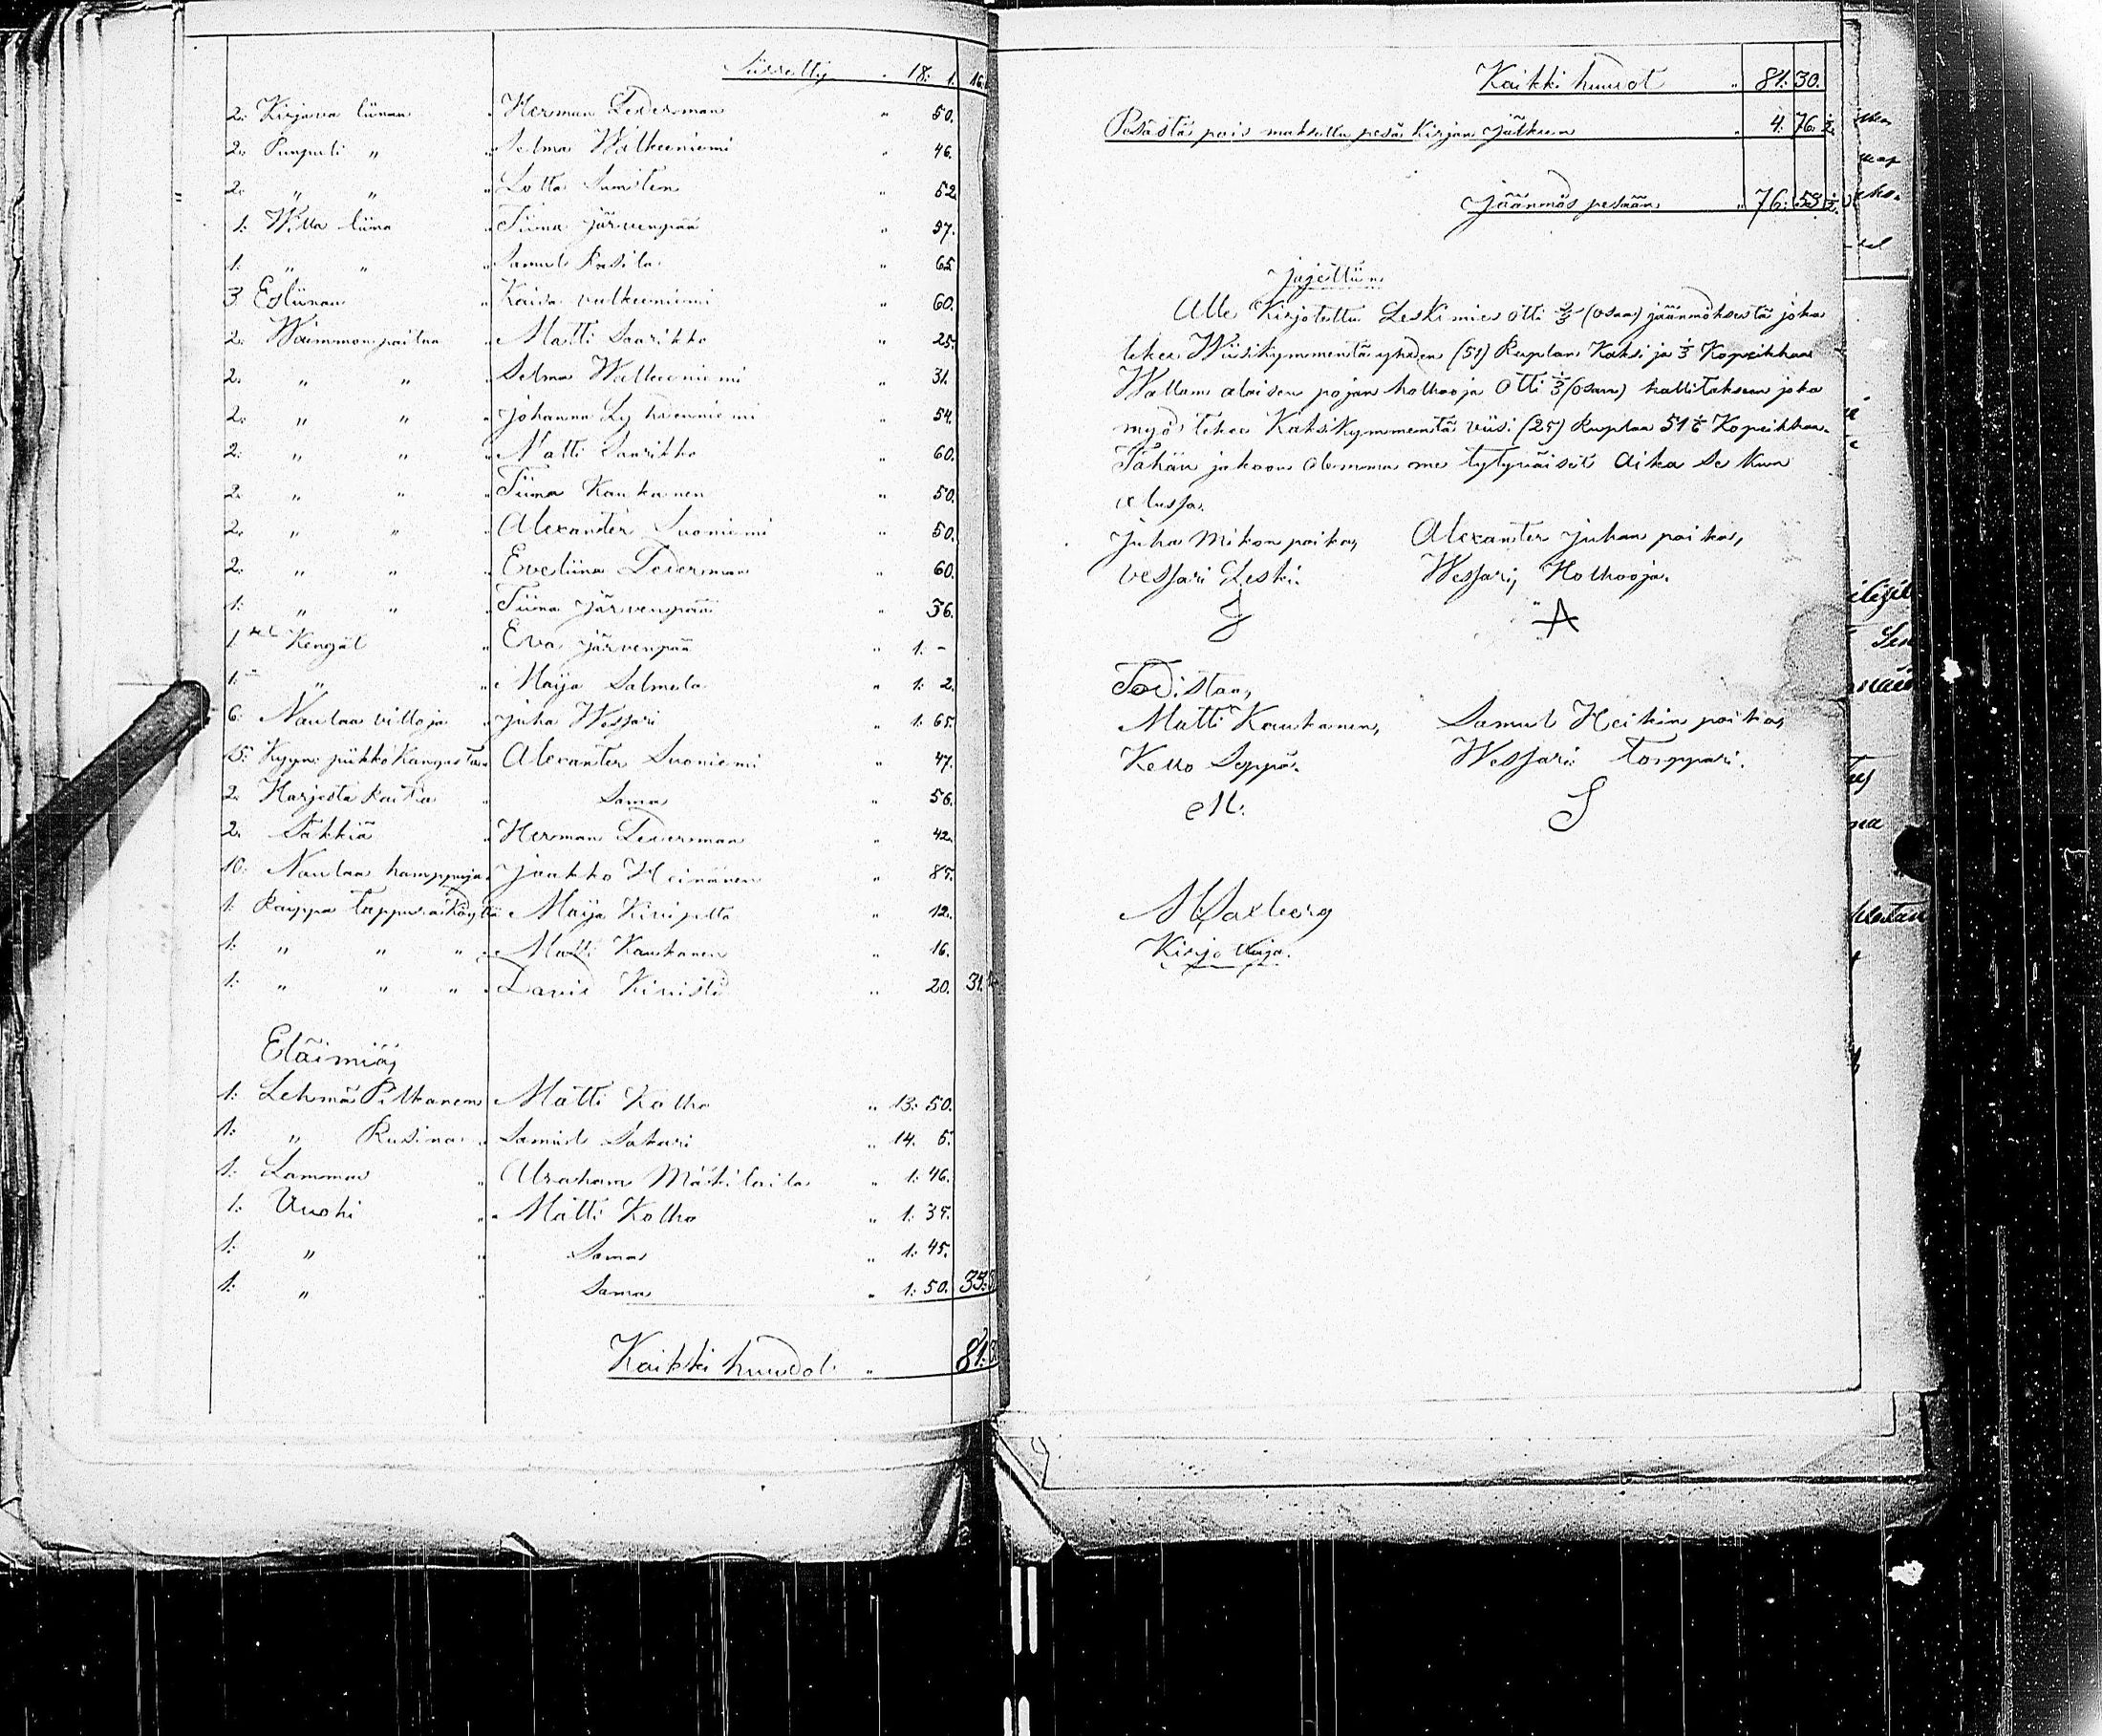 Siirretty " 18: 1. 16.
2: Kirjava liinan " Herman Lederman " 50.
2: Punperli " " Selma Walkeeniemi " 46.
2: " " " Lotta Sunsten " 52.
1: Willa liina " Tiina Järvenpää " 97.
1: " " " Samuel Rasila " 65
3 Esliinan " Kaisa valkeeniemi " 60.
2: Waimmon paitaa " Matti Saarikko " 25.
2: " " " Selma Walkeeniemi " 31.
2: " " " Johanna Lyhdenniemi " 54.
2: " " " Matti Saarikko " 60.
2: " " " Tiina Kaukanen " 50.
2: " " " Alexanter Suoniemi " 50.
2: " " " Eveliina Lederman " 60.
1: " " " Tiina Järvenpää " 36.
1: Kengät " Eva Järvenpää " 1: -
1: " " Maija Salmela " 1: 2.
6: Naulaa villoja " Juha Wessari " 1: 65.
15: Kyyn: piikko Kangasta " Alexanter Suoniemi " 47.
2: Harjesta Raitia " Sama " 56.
2: Säkkiä " Herman Lederman " 42.
10: Naulaa hamppuja " Jaakko Heinänen " 85.
1: Raippa tappuraköyttä Maija Kivipelto " 12.
1: " " " " Matti Kaukanen " 16.
1: " " " " David Kivistö " 20. 31.
Eläimiä,
1: Lehmä Pilkanen " Matti Kolho " 13: 50.
1: " Rusina " Samuel Sakari " 14. 5.
1: Lammas " Abraham Mäkilaila " 1: 46.
1: Vuohi " Matti Kolho " 1: 37.
1: " " Sama " 1: 45.
1: " " Sama " 1: 50. 33:
Kaikki huudot " 81:
Kaikki huudot " 81: 30.
Pesästä pois maksettu pesä Kirjan jälkeen " 4. 76. ½.
Jäännös pesään " 76: 53 ½.
Jajettiin
Alle Kirjotettu Leskimies otti ⅔ (osaa) jäännöksestä joka
tekee Wiisikymmentä yhden (51) Ruplan Kaksi ja ⅓ Kopeikkaa
Wallan alaisen pojan holhooja otti ⅓ (osan) hallitakseen joka
myös tekee Kaksikymmentä viisi (25) Ruplaa 51 ⅙ Kopeikkaa.
Tähän jakoon olemma me tytyväiset Aika Se Kun
alussa.
Juha Mikon poika, Alexanter Juhan poika,
Wessari Leski. Wessari, Holhooja.
J A
Todistaa,
Matti Kaukanen, Samuel Heikin poika,
Kello Seppä. Wessari Torppari.
M. S
Kirjottaja.